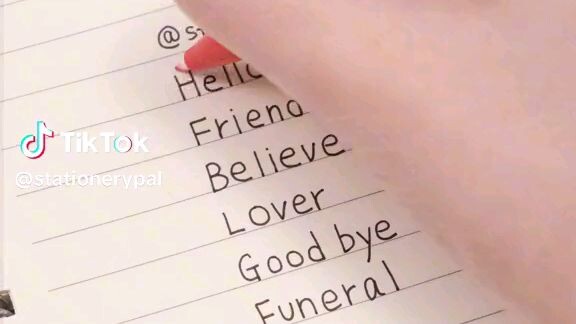 Hello
Friend
Believe
Lover
Good bye
Funeral
TikTok
@stationerypal